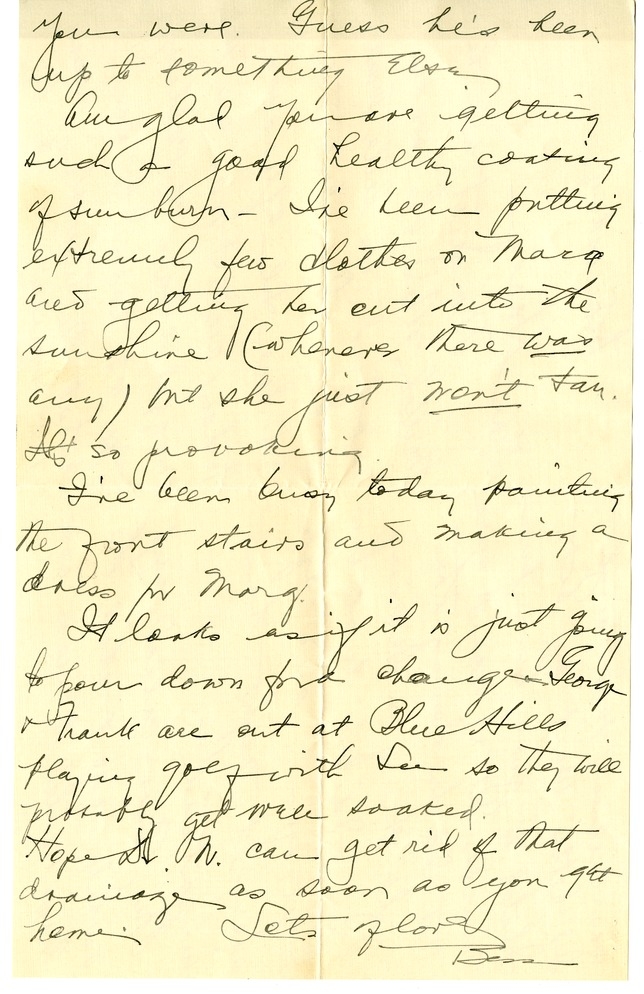 you were. Guess he's been
up to something else.
Am glad you are getting
such a good healthy coating
of sunburn - I've been putting
extremely few clothes on Marg
and getting her out into the
sunshine (whenever there was
any) but she just won't tan.
It's so provoking.
I've been busy today painting
the front stairs and making a
dress for Marg.
It looks as if it is just going
to pour down for a change. George
& Frank are out at Blue Hills
playing golf with so they will
probably get well soaked.
Hope N. can get rid of that
drainage as soon as you get
home. Lots of love
Bess